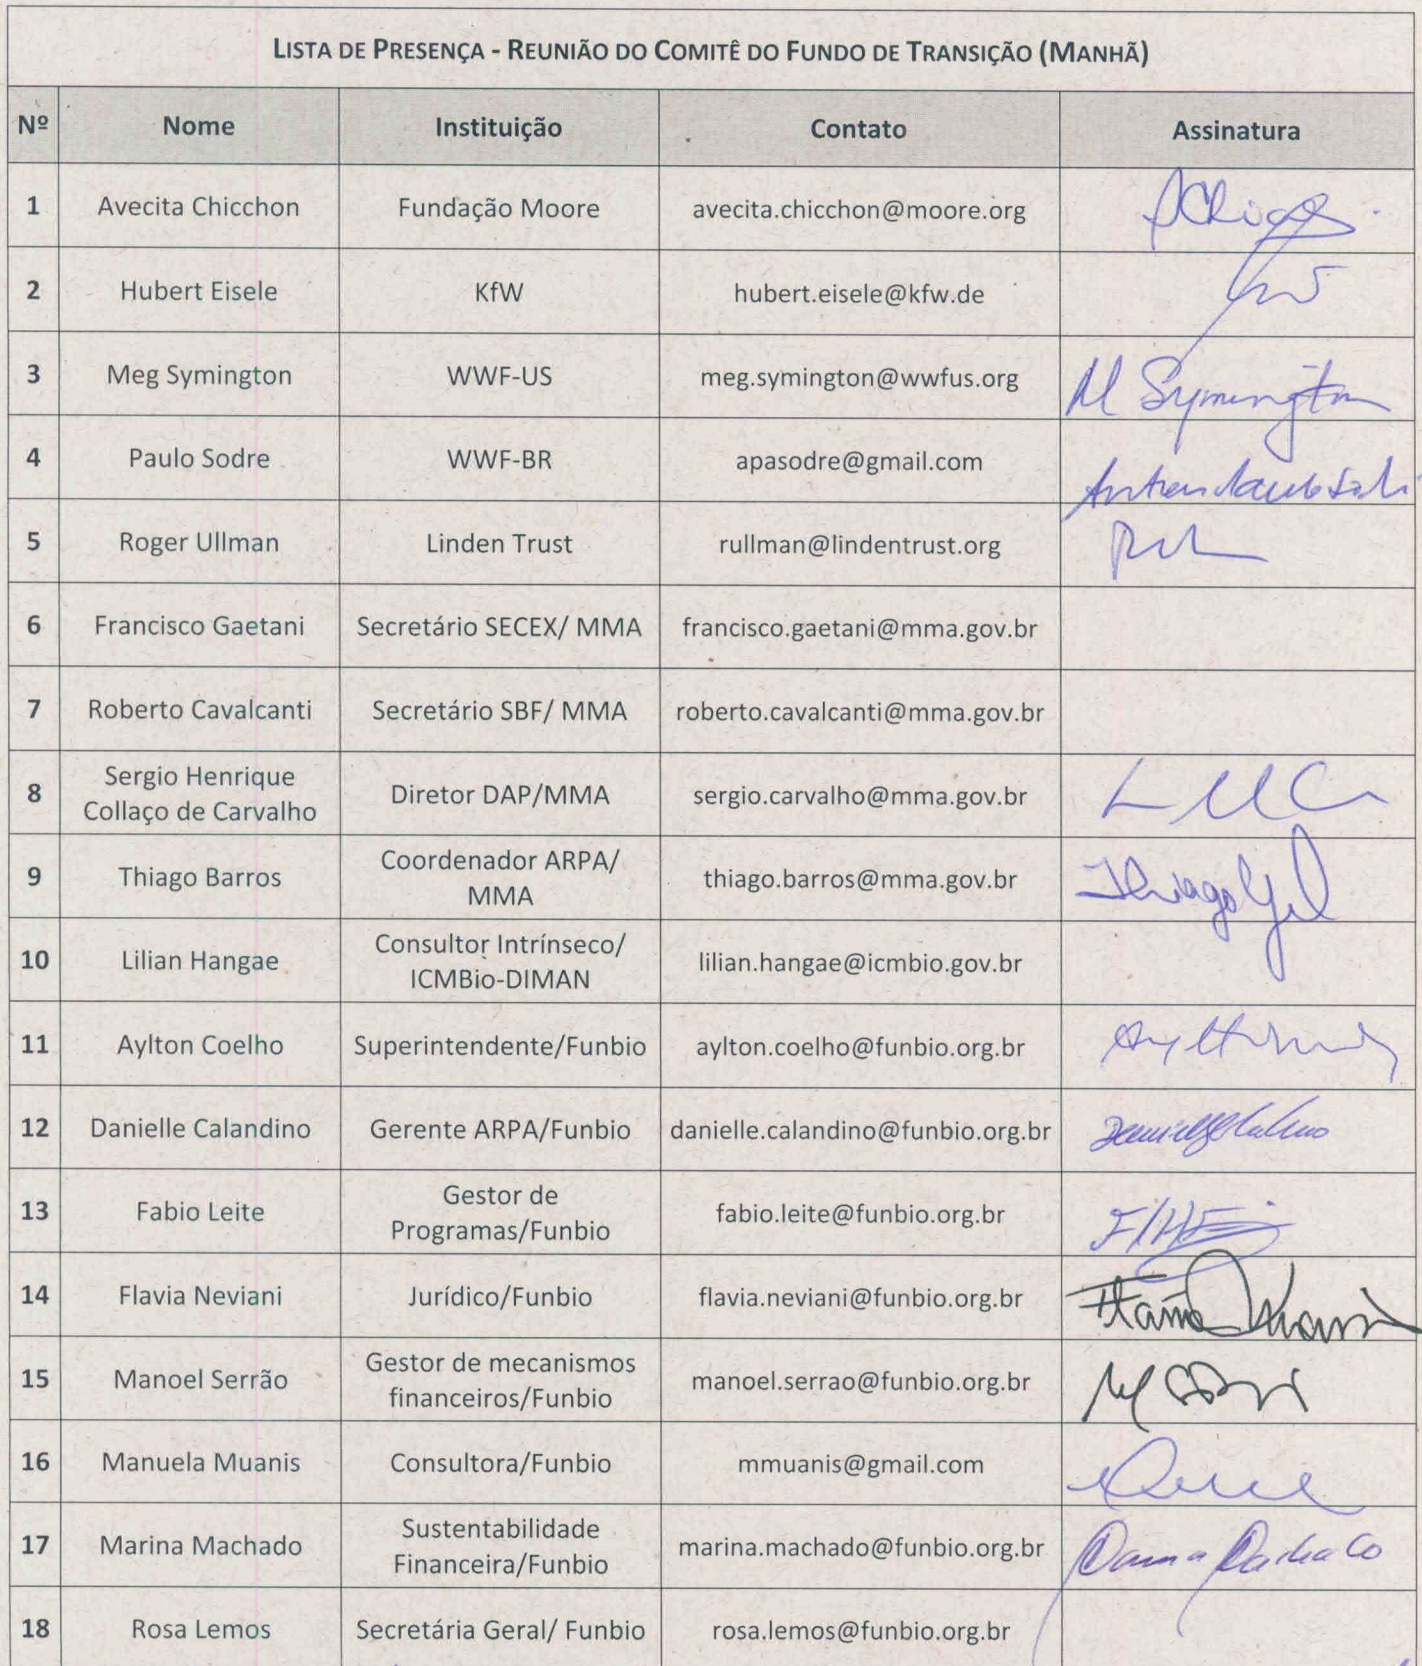 LISTA DE PRESENÇA - REUNIÃO DO COMITÊ DO FUNDO DE TRANSIÇÃO (MANHÃ)
Nº Nome Instituição Contato Assinatura
1 Avecita Chicchon Fundação Moore avecita.chicchon@moore.org
2 Hubert Eisele KfW hubert.eisele@kfw.de
3 Meg Symington WWF-US meg.symington@wwfus.org M Symington
4 Paulo Sodre WWF-BR apasodre@gmail.com
5 Roger Ullman Linden Trust rullman@lindentrust.org
6 Francisco Gaetani Secretário SECEX/ MMA francisco.gaetani@mma.gov.br
7 Roberto Cavalcanti Secretário SBF/ MMA roberto.cavalcanti@mma.gov.br
8 Sergio Henrique
Collaço de Carvalho Diretor DAP/MMA sergio.carvalho@mma.gov.br
9 Thiago Barros Coordenador ARPA/
MMA thiago.barros@mma.gov.br Thiago
10 Lilian Hangae Consultor Intrínseco/
ICMBio-DIMAN lilian.hangae@icmbio.gov.br
11 Aylton Coelho Superintendente/Funbio aylton.coelho@funbio.org.br
12 Danielle Calandino Gerente ARPA/Funbio danielle.calandino@funbio.org.br
13 Fabio Leite Gestor de
Programas/Funbio fabio.leite@funbio.org.br
14 Flavia Neviani Jurídico/Funbio flavia.neviani@funbio.org.br
15 Manoel Serrão Gestor de mecanismos
financeiros/Funbio manoel.serrao@funbio.org.br
16 Manuela Muanis Consultora/Funbio mmuanis@gmail.com
17 Marina Machado Sustentabilidade
Financeira/Funbio marina.machado@funbio.org.br
18 Rosa Lemos Secretária Geral/ Funbio rosa.lemos@funbio.org.br